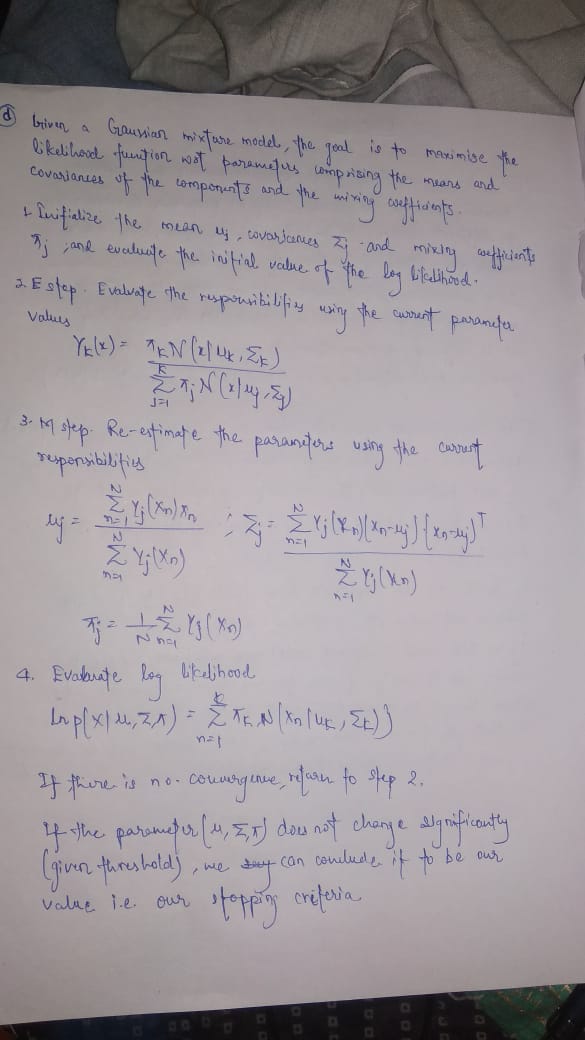 (d) Given a Gaussian mixture model, the goal is to maximise the
likelihood function wrt parameters comprising the means and
covariances of the components and the mixing coefficients.
1. Initialize the mean μj, covariances Σj and mixing coefficients
πj, and evaluate the initial value of the log likelihood.
2. E step. Evaluate the responsibilities using the current parameter
values
γk(x) = πk N(x|μk, Σk) / Σ_{j=1}^{K} πj N(x|μj, Σj)
3. M step. Re-estimate the parameters using the current
responsibilities
μj = Σ_{n=1}^{N} γj(xn) xn / Σ_{n=1}^{N} γj(xn) ; Σj = Σ_{n=1}^{N} γj(xn)(xn-μj)(xn-μj)^T / Σ_{n=1}^{N} γj(xn)
πj = 1/N Σ_{n=1}^{N} γj(xn)
4. Evaluate log likelihood
ln p(X|μ, Σ, π) = Σ_{n=1}^{K} πk N(xn|μk, Σk)}
If there is no convergence, return to step 2.
If the parameter (μ, Σ, π) does not change significantly
(given threshold), we can conclude it to be our
value i.e. our stopping criteria